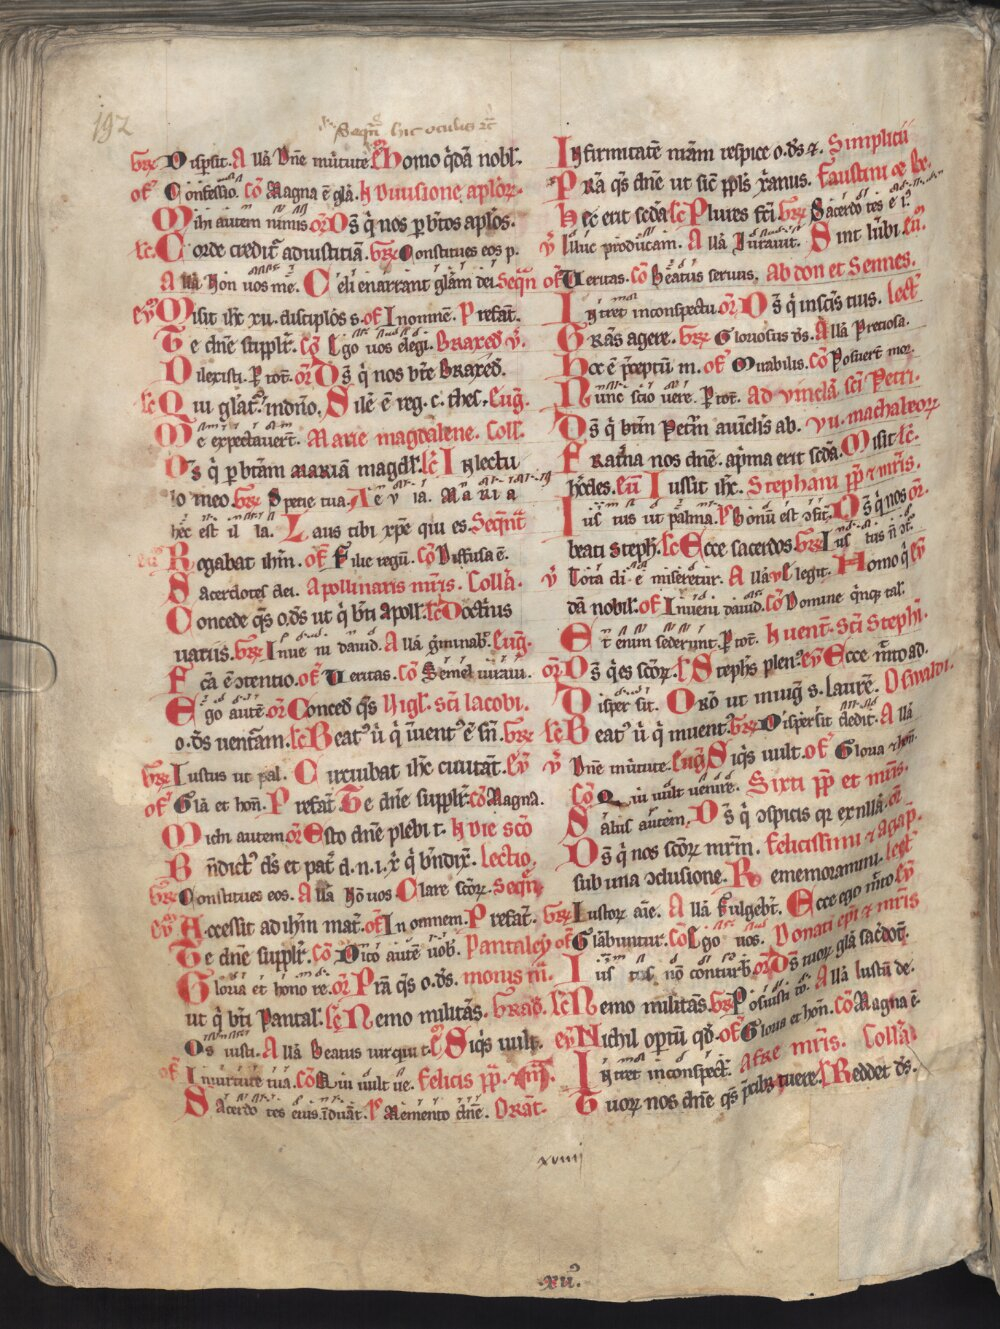 192
Seqn hic oculis
Gr Dispsit. A llā Dne mitute. Ev homo qdā nobl'.
of Confessio. Cō Magna ē glā. In diuisione aplor.
Mihi autem nimis or Ds q nos p btos aplos.
le Corde creditr adiustitiā. Gr Constitues eos p.
A llā Non uos me. Celi enarrant glām dei. Seqn
ev Misit ihc xii. discipłos s. of In omnem. Prefat.
Te dne supplr. Cō Ego uos elegi. Praxed v.
Dilexisti. P tot. or Ds q nos bte Praxed.
le Qui glat indno. Sile ē reg. c. thes. Eug.
Me expectauert. Marie magdalene. Coll.
Ds q p btam mariā magdł. le In lectu
lo meo. Gr Specie tua. Ae v ia. Maria
hec est il la. Laus tibi xpe qui es. Seqnt
Rogabat ihm. of Filie regū. Cō Diffusa ē.
Sacerdotes dei. Apollinaris mris. Collā.
Concede qs o. ds ut q bti apoll. le Doctrinis
uariis. Gr Inue ni dauid. A llā
Fca ē ɔtentio. of Ueritas. Cō Semel iuraui.
Ego autē. or Conced qs Uigł. sci Iacobi.
o. ds uenturam. le Beat uir q inuent ē sn. Gr
Gr Iustus ut pal. Circuibat ihc ciuitat. ev
of Glā et hon. Prefat Te dne supplr. cō Magna.
Michi autem or Esto dne plebi t. In die scō
Bndict ds et pat d. n. i. x q bndix. lectio.
Gr Constitues eos. A llā Nō uos Clare scor. Seqn
ev Accessit ad ihm mat. of In omnem. Prefat.
Te dne supplr. cō Dico autē uob. Pantaley
Gloria et hono re. or Prā qs o. ds. monis m.
ut q bti Pantal. le Nemo militās. Grad.
Os iusti. A llā Beatus uir qui t. ev Siqs uult.
of In uirtute tua. Cō Qui uult ue. Felicis pp.
Sacerdo tes eius induāt. Ps Memento dne. Orāt.
Infirmitatē nram respice o. ds. Simplicii
Prā qs dne ut sic ppłs xanus. Faustini
Hec erit scda le Plures fci Gr Sacerdo tes e i'
v Illuc producam. A llā Iurauit. Sint lubi eu.
of Ueritas. cō Beatus seruus, Ab don et Sennes.
Intret inconspectu or Ds q inscis tuis. Lect
Grās agere. Gr Gloriosus ds. A llā Preciosa.
Hoc ē pceptū m. of Mirabilis. Cō Posuert mor.
Nunc scio uere. P tot. Ad vinclā sci Petri.
Ds q btm Petrm auinclis ab. Vii. machabeor
Fratna nos dne. apma erit scda. Misit le.
hodes. eu Iussit ihc. Stephani pp & mris.
Ius tus ut palma. Ps Bonū est ɔfit. Ds q nos or.
beati Steph. le Ecce sacerdos. Gr Ius tus
v Tota di e miseretur. A llā legit. Homo q ev
dā nobil. of Inueni dauid. cō Domine qnq tal.
Et enim sederunt. P tot. Inuent. sci Stephi.
or Ds qes scor. le Stephs plen. ev Ecce mito ad.
Disper sit. Oro ut mung s. laure. Oswaldi.
le Beat uir q inuent. Gr Dispersit dedit. A llā
v Dne mitute. Eug Siqs uult. of Gloria & hon.
Cō Qui uult uenire. Sixti pp et mris.
Salus autem. Ds q ɔspicis qr exnllā. or
Ds q nos scor mrm. Felicissimi & agap.
sub una ɔclusione. Re ememoramini. lect
Gr Iustor aīe. A llā Fulgebt. Ecce ego mito ev
of Glābuntur. Cō Ego uos. Donati epi & mris
Ius tus nō conturb. or Ds tuor glā sacdot.
le Nemo militās. Gr Posuisti dne. A llā Iustū de.
ev Nichil optū qd. of Gloria et hon. Cō Magna ē.
Intret inconspect. Afre mris. Collā
Tuor nos dne qs pcibz tuere. le Reddet ds.
xviiij
.xii.